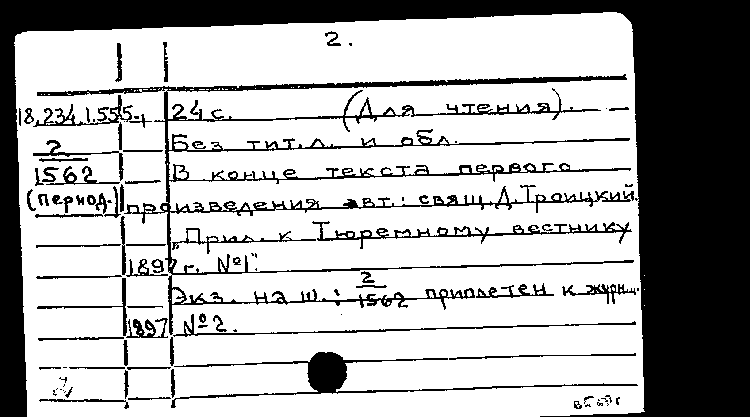 2.
18.234.1.555., 24 с. (Для чтения).
2 Без тит.л. и обл.
1562 В конце текста первого
(период.) произведения авт.: свящ. Д. Троицкий.
"Прил. к Тюремному вестнику
1897 г. №1".
Экз. на ш.: 2/1562 приплетен к журн.
1897 №2.